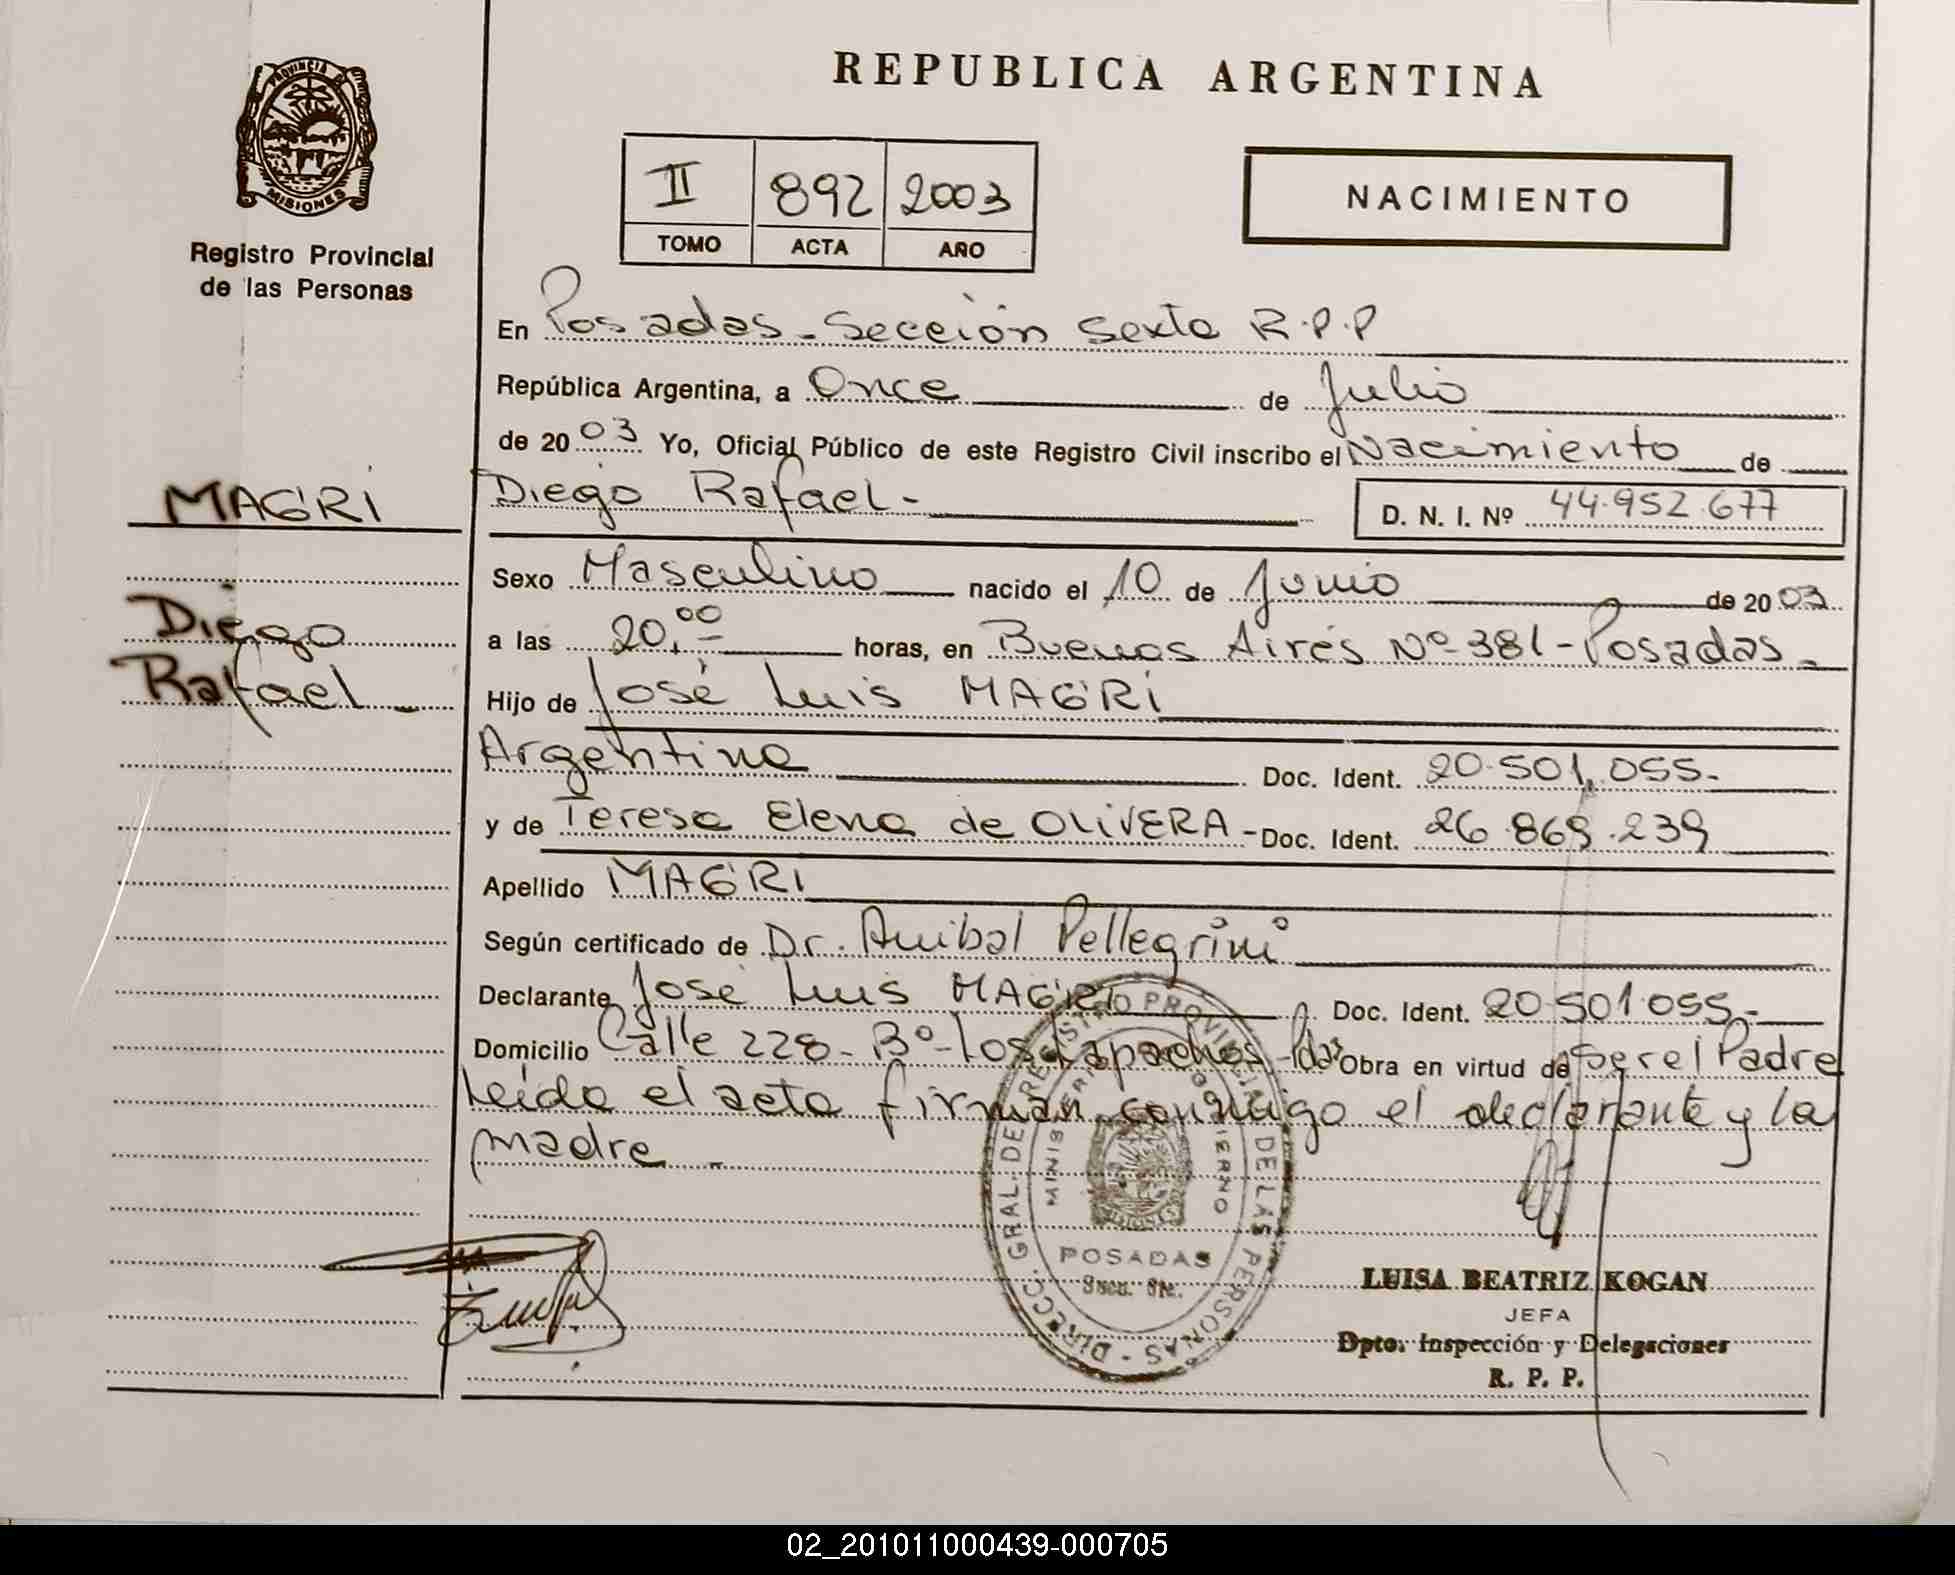 REPUBLICA ARGENTINA
PROVINCIA DE
MISIONES
Registro Provincial
de las Personas
II 892 2003
TOMO ACTA AÑO
NACIMIENTO
En Posadas - Sección Sexta R.P.P
República Argentina, a Once de Julio
de 2003 Yo, Oficial Público de este Registro Civil inscribo el Nacimiento de
MAGRI
Diego Rafael -
D. N. I. Nº 44.952.677
Sexo Masculino nacido el 10 de Junio de 2003
Diego
Rafael -
a las 20,00 horas, en Buenos Aires Nº 381 - Posadas -
Hijo de José Luis MAGRI
Argentina Doc. Ident. 20.501.055.
y de Teresa Elena de OLIVERA - Doc. Ident. 26.869.239
Apellido MAGRI
Según certificado de Dr. Anibal Pellegrini
Declarante José Luis MAGRI Doc. Ident. 20.501.055.-
Domicilio Calle 228 - Bº Los Lapachos - Pdas Obra en virtud de Ser el Padre
Leída el acta firman conmigo el declarante y la
madre -
DIRECC. GRAL. DEL REGISTRO PROVINCIAL DE LAS PERSONAS -
MINISTERIO GOBIERNO
POSADAS
LUISA BEATRIZ KOGAN
JEFA
Dpto. Inspección y Delegaciones
R. P. P.
02_201011000439-000705